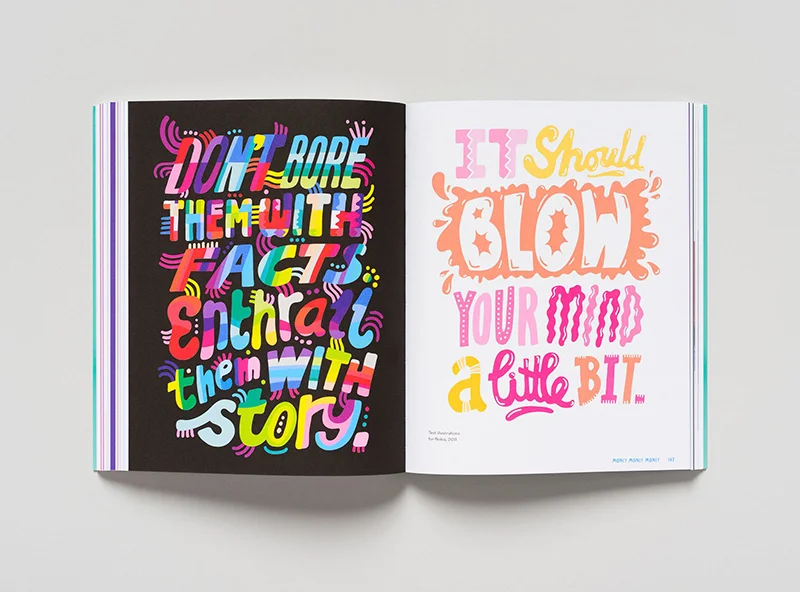 DON'T BORE
THEM WITH
FACTS.
Enthrall
them WITH
story.
IT Should
BLOW
YOUR MIND
a little BIT.
Text illustrations
for Nokia, 2011.
MONEY MONEY MONEY